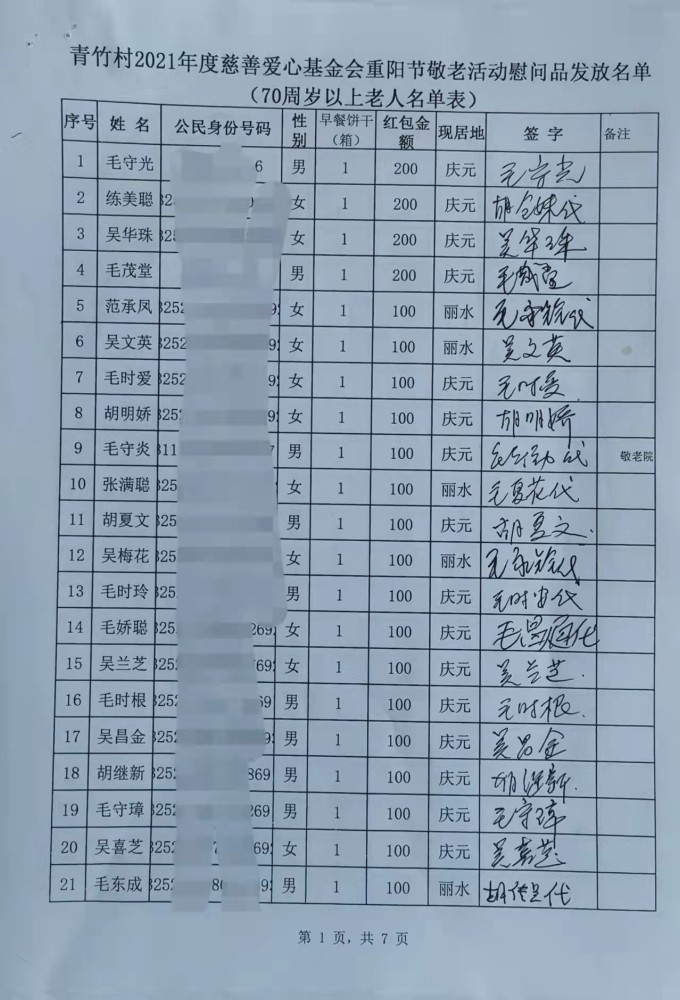 青竹村2021年度慈善爱心基金会重阳节敬老活动慰问品发放名单
（70周岁以上老人名单表）
序号 姓 名 公民身份号码 性别 早餐饼干（箱） 红包金额 现居地 签 字 备注
1 毛守光 6 男 1 200 庆元 毛守光
2 练美聪 325 女 1 200 庆元 胡金妹代
3 吴华珠 325 女 1 200 庆元 吴华珠
4 毛茂堂 男 1 200 庆元 毛茂堂
5 范承凤 3252 92 女 1 100 丽水
6 吴文英 3252 92 女 1 100 丽水 吴文英
7 毛时爱 3252 92 女 1 100 庆元 毛时爱
8 胡明娇 3252 92 女 1 100 庆元 胡明娇
9 毛守炎 311 7 男 1 100 庆元 敬老院
10 张满聪 325 女 1 100 丽水 毛夏花代
11 胡夏文 325 男 1 100 庆元 胡夏文.
12 吴梅花 325 女 1 100 丽水
13 毛时玲 325 男 1 100 庆元
14 毛娇聪 325 269 女 1 100 庆元
15 吴兰芝 325 769 女 1 100 庆元 吴兰芝.
16 毛时根 325 69 男 1 100 庆元 毛时根.
17 吴昌金 3252 92 男 1 100 庆元 吴昌金
18 胡继新 3252 869 男 1 100 庆元 胡继新.
19 毛守璋 3252 269 男 1 100 庆元 毛守璋
20 吴喜芝 3252 7 692 女 1 100 庆元 吴喜芝
21 毛东成 3252 80 92 男 1 100 丽水
第 1 页，共 7 页